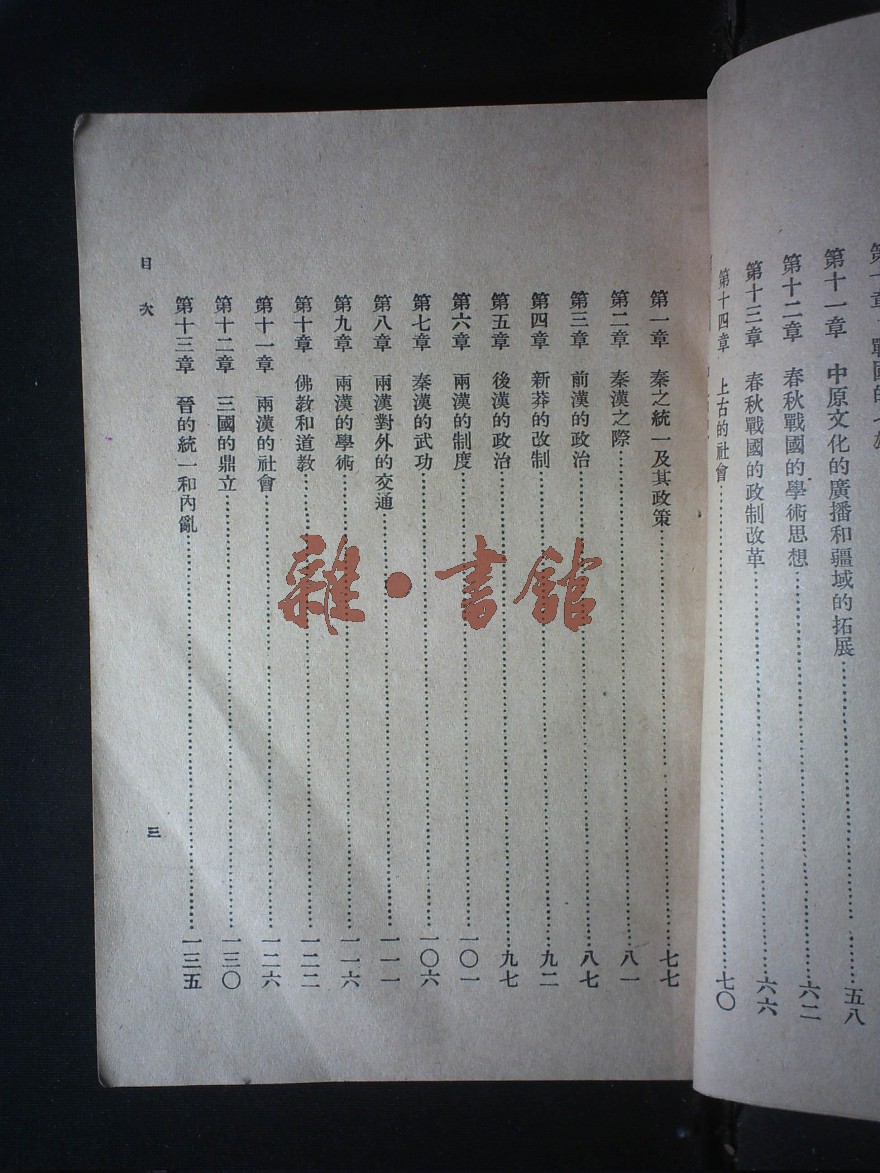 戰國的七雄
第十一章 中原文化的廣播和疆域的拓展……五八
第十二章 春秋戰國的學術思想……六二
第十三章 春秋戰國的政制改革……六六
第十四章 上古的社會……七〇
第一章 秦之統一及其政策……七七
第二章 秦漢之際……八一
第三章 前漢的政治……八七
第四章 新莽的改制……九二
第五章 後漢的政治……九七
第六章 兩漢的制度……一〇一
第七章 秦漢的武功……一〇六
第八章 兩漢對外的交通……一一一
第九章 兩漢的學術……一一六
第十章 佛教和道教……一二二
第十一章 兩漢的社會……一二六
第十二章 三國的鼎立……一三〇
第十三章 晉的統一和內亂……一三五
目次
三
雜·書館